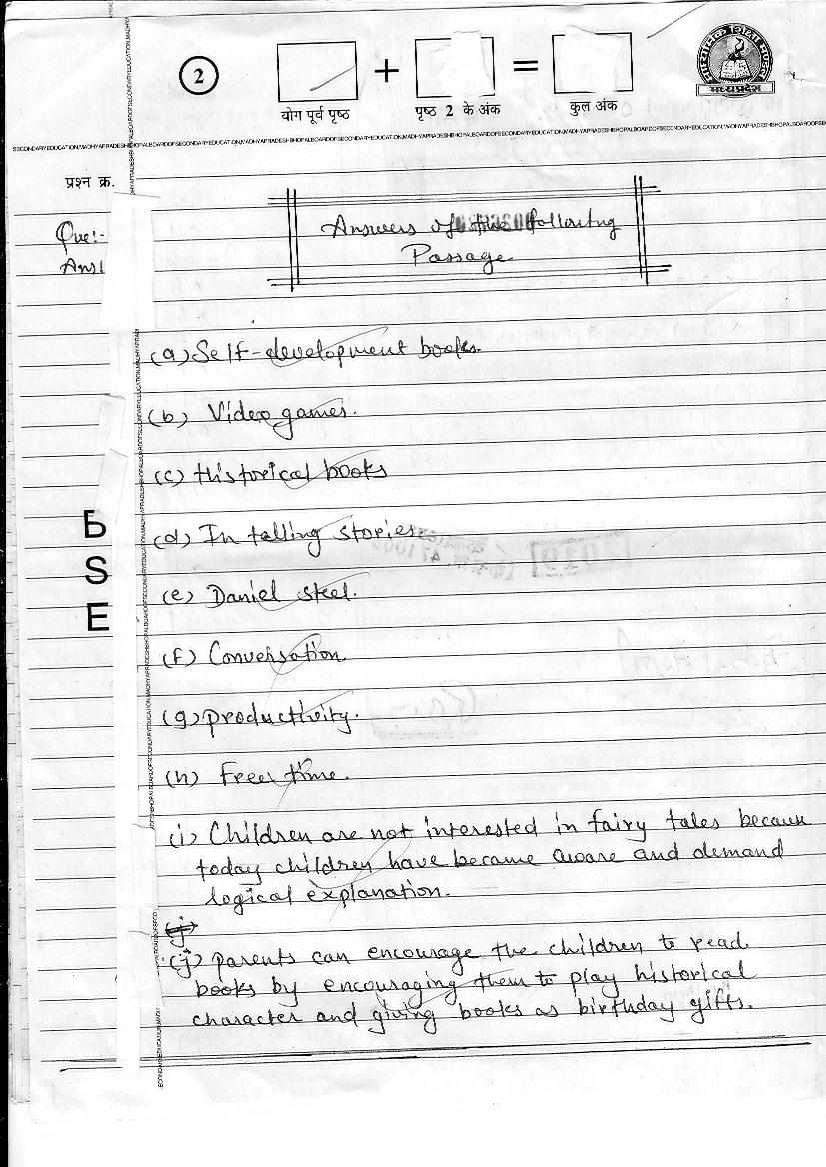 2
+
=
योग पूर्व पृष्ठ
पृष्ठ 2 के अंक
कुल अंक
मध्यप्रदेश
प्रश्न क्र.
Que:-
Ans1
Answers of the following
Passage
(a) Self-development books.
(b) Video games.
(c) Historical books
(d) In telling stories.
(e) Daniel steel.
(f) Conversation.
(g) productivity.
(h) Free time.
(i) Children are not interested in fairy tales because
today children have became aware and demand
logical explanation.
(j)
(j) parents can encourage the children to read
books by encouraging them to play historical
character and giving books as birthday gifts.
B
S
E